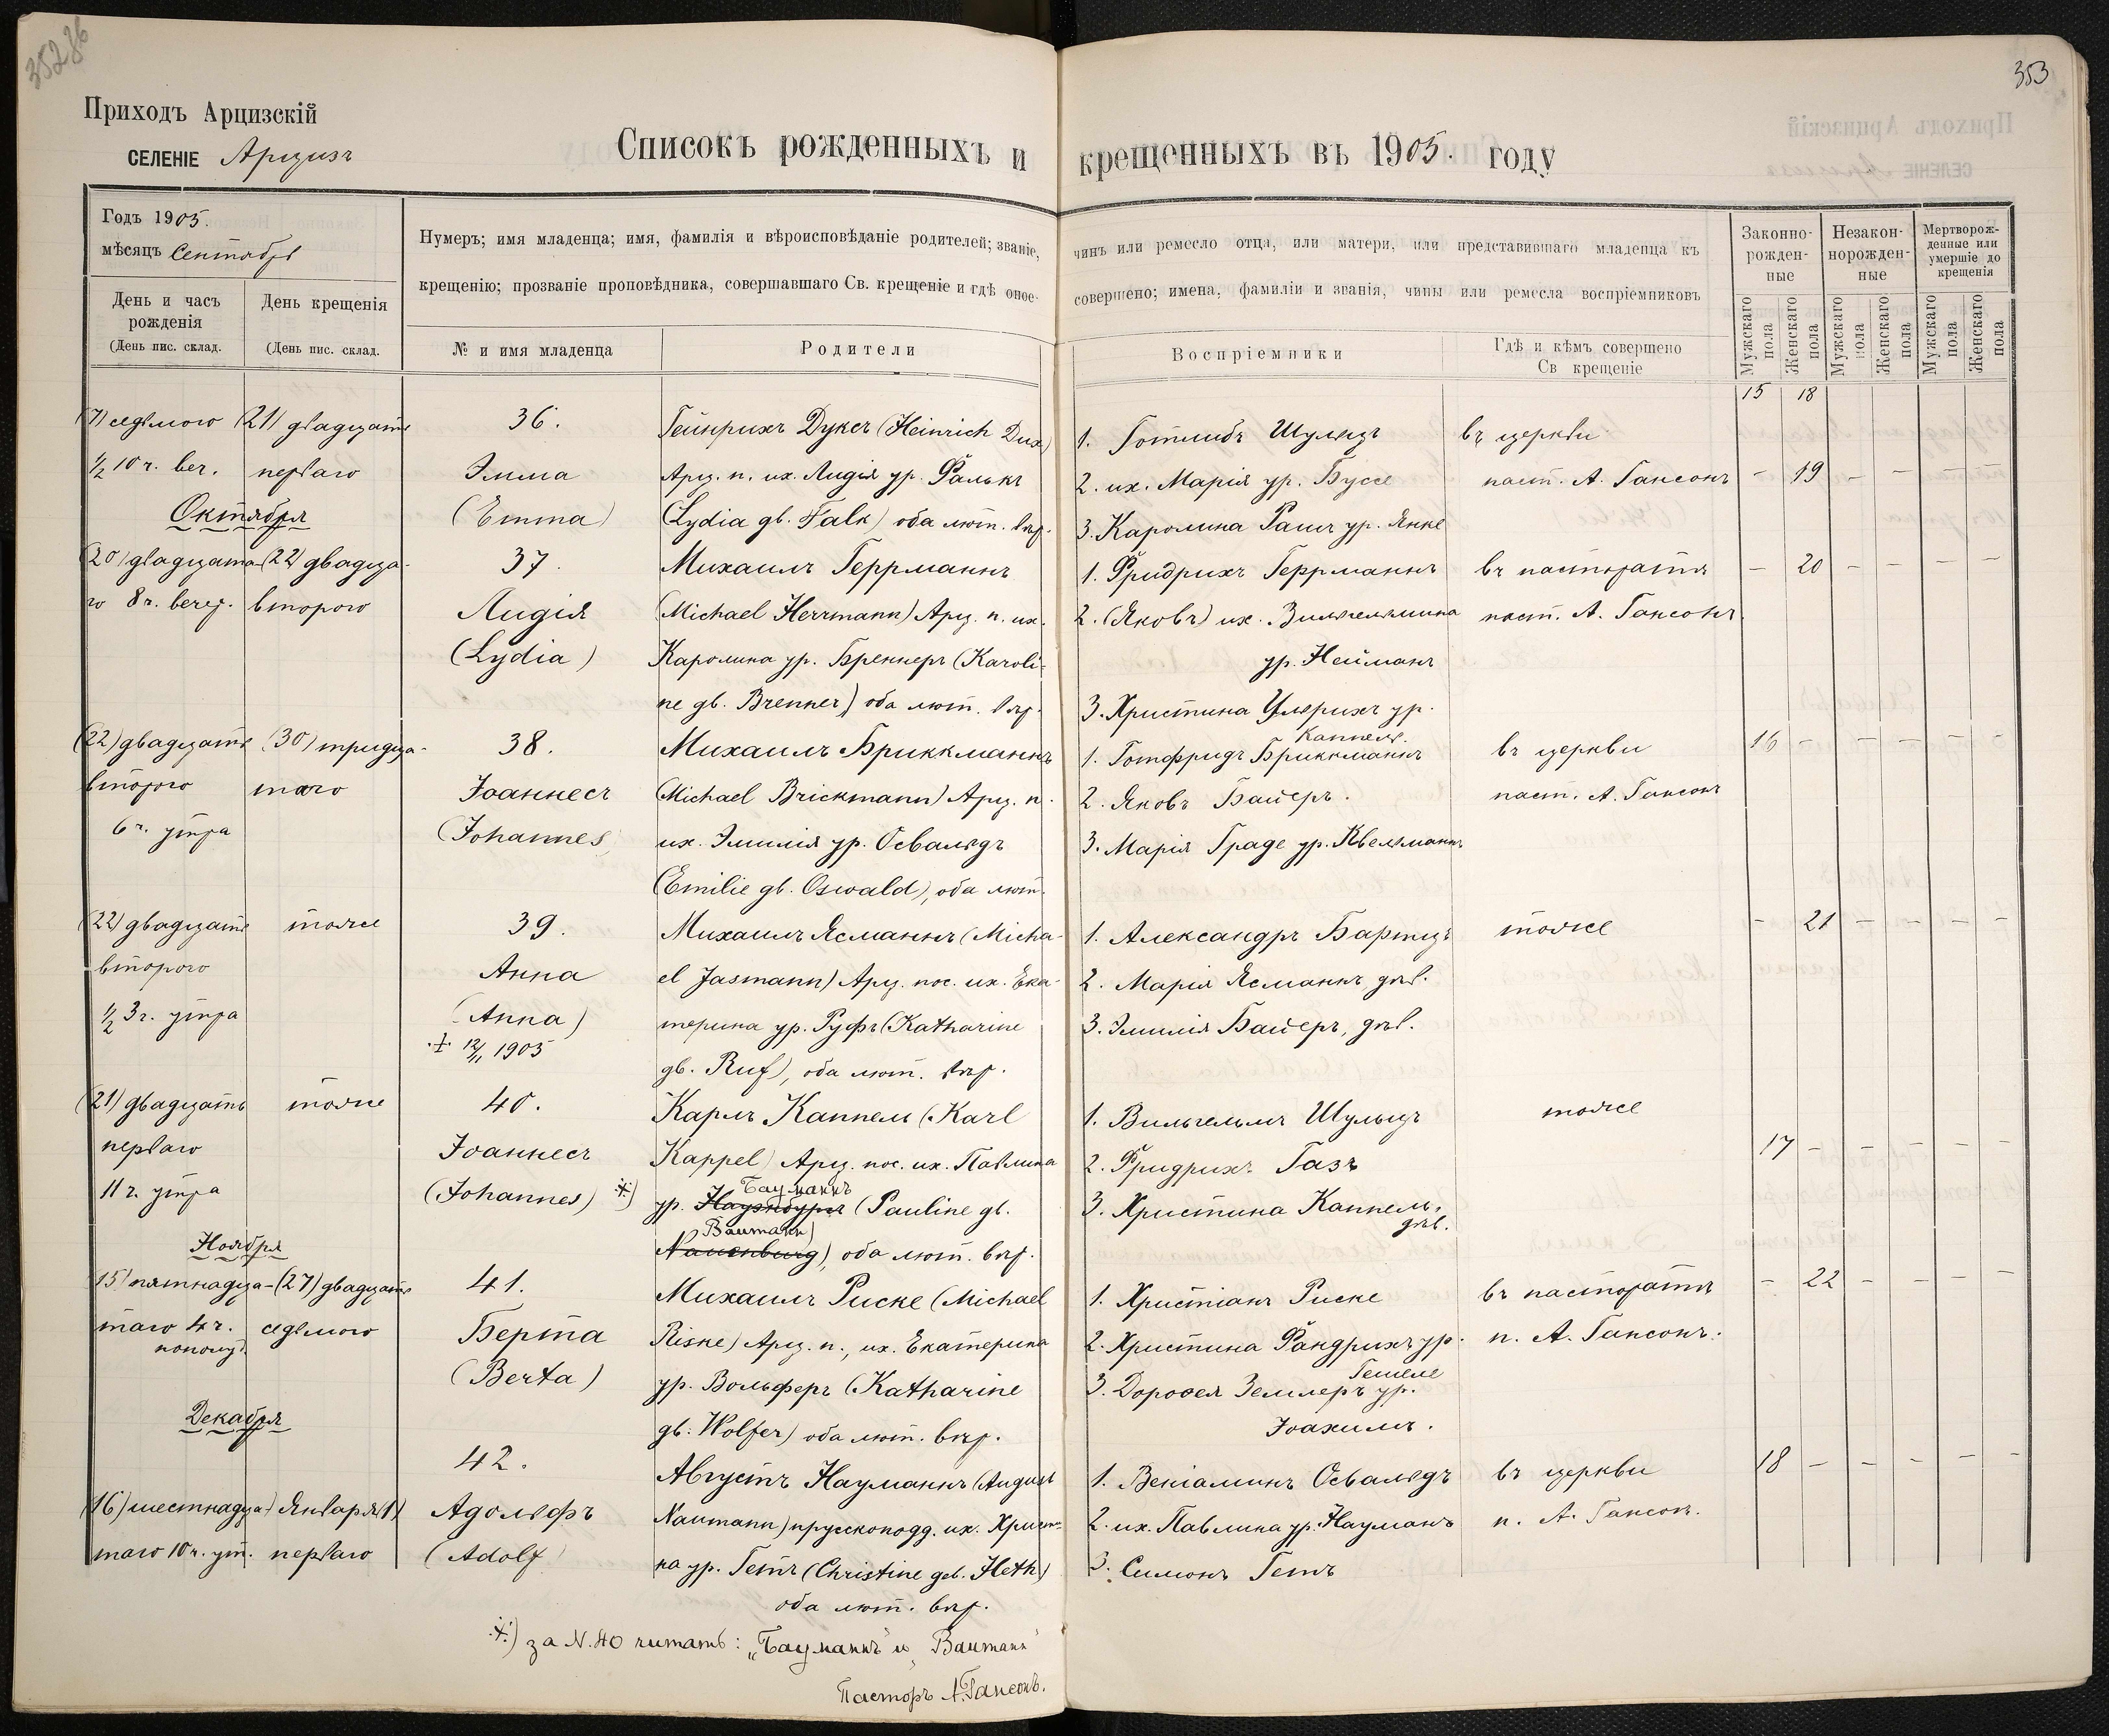 35286
353
Приходъ Арцизскій
СЕЛЕНІЕ Арцизъ
Списокъ рожденныхъ и крещенныхъ въ 1905. году
Годъ 1905.
мѣсяцъ Сентябрь
Нумеръ; имя младенца; имя, фамилія и вѣроисповѣданіе родителей; званіе, чинъ или ремесло отца, или матери, или представившаго младенца къ
крещенію; прозваніе проповѣдника, совершавшаго Св. крещеніе и гдѣ оное совершено; имена, фамиліи и званія, чины или ремесла воспріемниковъ
Законно-
рожден-
ные
Незакон-
норожден-
ные
Мертворож-
денные или
умершіе до
крещенія
День и часъ
рожденія
(День пис. склад.
День крещенія
(День пис. склад.
№ и имя младенца
Родители
Воспріемники
Гдѣ и кѣмъ совершено
Св крещеніе
Мужскаго пола
Женскаго пола
Мужскаго пола
Женскаго пола
Мужскаго пола
Женскаго пола
15 18
(7) седьмого
½ 10 ч. веч.
(21) двадцать
перваго
36.
Эмма
(Emma)
Гейнрихъ Дуксъ (Heinrich Dux)
Арц. п. иж. Лидія ур. Фалькъ
(Lydia gb. Falk) оба лют. вѣр.
1. Готлибъ Шульцъ
2. иж. Марія ур. Буссе
3. Каролина Рашъ ур. Янке
въ церкви
паст. А. Гансонъ
— 19 — — — —
Октября
(20) двадцата-
го 8 ч. вечер.
(22) двадца-
второго
37.
Лидія
(Lydia)
Михаилъ Геррманнъ
(Michael Herrmann) Арц. п. иж.
Каролина ур. Бреннеръ (Karoli-
ne gb. Brenner) оба лют. вѣр.
1. Фридрихъ Геррманнъ
2. (Яковъ) иж. Вильгельмина
ур. Нейманъ
3. Христина Ульрихъ ур.
Каппель.
въ пасторатѣ
паст. А. Гансонъ.
— 20 — — — —
(22) двадцать
второго
6 ч. утра
(30) тридца-
таго
38.
Іоаннесъ
(Johannes)
Михаилъ Бриккманнъ
(Michael Brickmann) Арц. п.
иж. Эмилія ур. Освальдъ
(Emilie gb. Oswald), оба лют.
1. Готфридъ Бриккманнъ
2. Яковъ Байеръ.
3. Марія Граде ур. Квельманнъ
въ церкви
паст. А. Гансонъ
16 — — — — —
(22) двадцать
второго
½ 3 ч. утра
тоже
39.
Анна
(Anna)
+ 12/11 1905
Михаилъ Ясманнъ (Micha-
el Jasmann) Арц. пос. иж. Ека-
терина ур. Руфъ (Katharine
gb. Ruf), оба лют. вѣр.
1. Александръ Бартцъ
2. Марія Ясманнъ, дѣв.
3. Эмилія Байеръ, дѣв.
тоже
— 21 — — — —
(21) двадцать
перваго
11 ч. утра
тоже
40.
Іоаннесъ
(Johannes) *)
Карлъ Каппель (Karl
Kappel) Арц. пос. иж. Павлина
Бауманнъ
ур. Науэнбургъ (Pauline gb.
Baumann)
Nauenburg), оба лют. вѣр.
1. Вильгельмъ Шульцъ
2. Фридрихъ Газъ
3. Христина Каппель,
дѣв.
тоже
17 — — — — —
Ноября
(15) пятнадца-
таго 4 ч.
пополуд.
(27) двадцать
седьмого
41.
Берта
(Berta)
Михаилъ Риске (Michael
Riske) Арц. п., иж. Екатерина
ур. Вольферъ (Katharine
gb. Wolfer) оба лют. вѣр.
1. Христіанъ Риске
2. Христина Фандрихъ ур.
Гешеле
3. Доровея Землеръ ур.
Іоахимъ.
въ пасторатѣ
п. А. Гансонъ.
— 22 — — — —
Декабря
(16) шестнадца-
таго 10 ч. ут.
Января (1)
перваго
42.
Адольфъ
(Adolf)
Августъ Науманнъ (August
Naumann) прусскоподд. иж. Христи-
на ур. Гетъ (Christine geb. Heth)
оба лют. вѣр.
1. Веніаминъ Освальдъ
2. иж. Павлина ур. Науманъ
3. Симонъ Гетъ
въ церкви
п. А. Гансонъ.
18 — — — — —
*) за N. 40 читать: „Бауманнъ" и „Baumann"
Пасторъ А. Гансонъ.